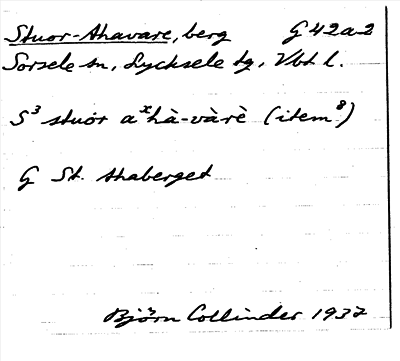 Stuor-Ahavare, berg G 42a2
Sorsele sn, Lycksele tg, Vbt l.
S³ stuor aˣhà-vàrè (item⁸)
G St. Ahaberget
Björn Collinder 1937